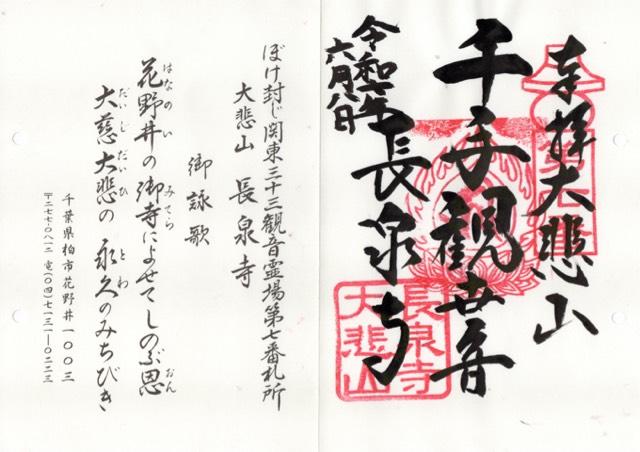 奉拝大悲山
千手観世音
長泉寺
令和七年
六月八日
長泉寺
大悲山
ぼけ封じ関東三十三観音霊場第七番札所
大悲山 長泉寺
御詠歌
花野井の御寺によせてしのぶ恩
はなのい みてら おん
大慈大悲の 永久のみちびき
だいじだいひ とわ
千葉県柏市花野井一〇〇三
〒二七七-〇八一二 電(〇四)七一三一-〇二二三